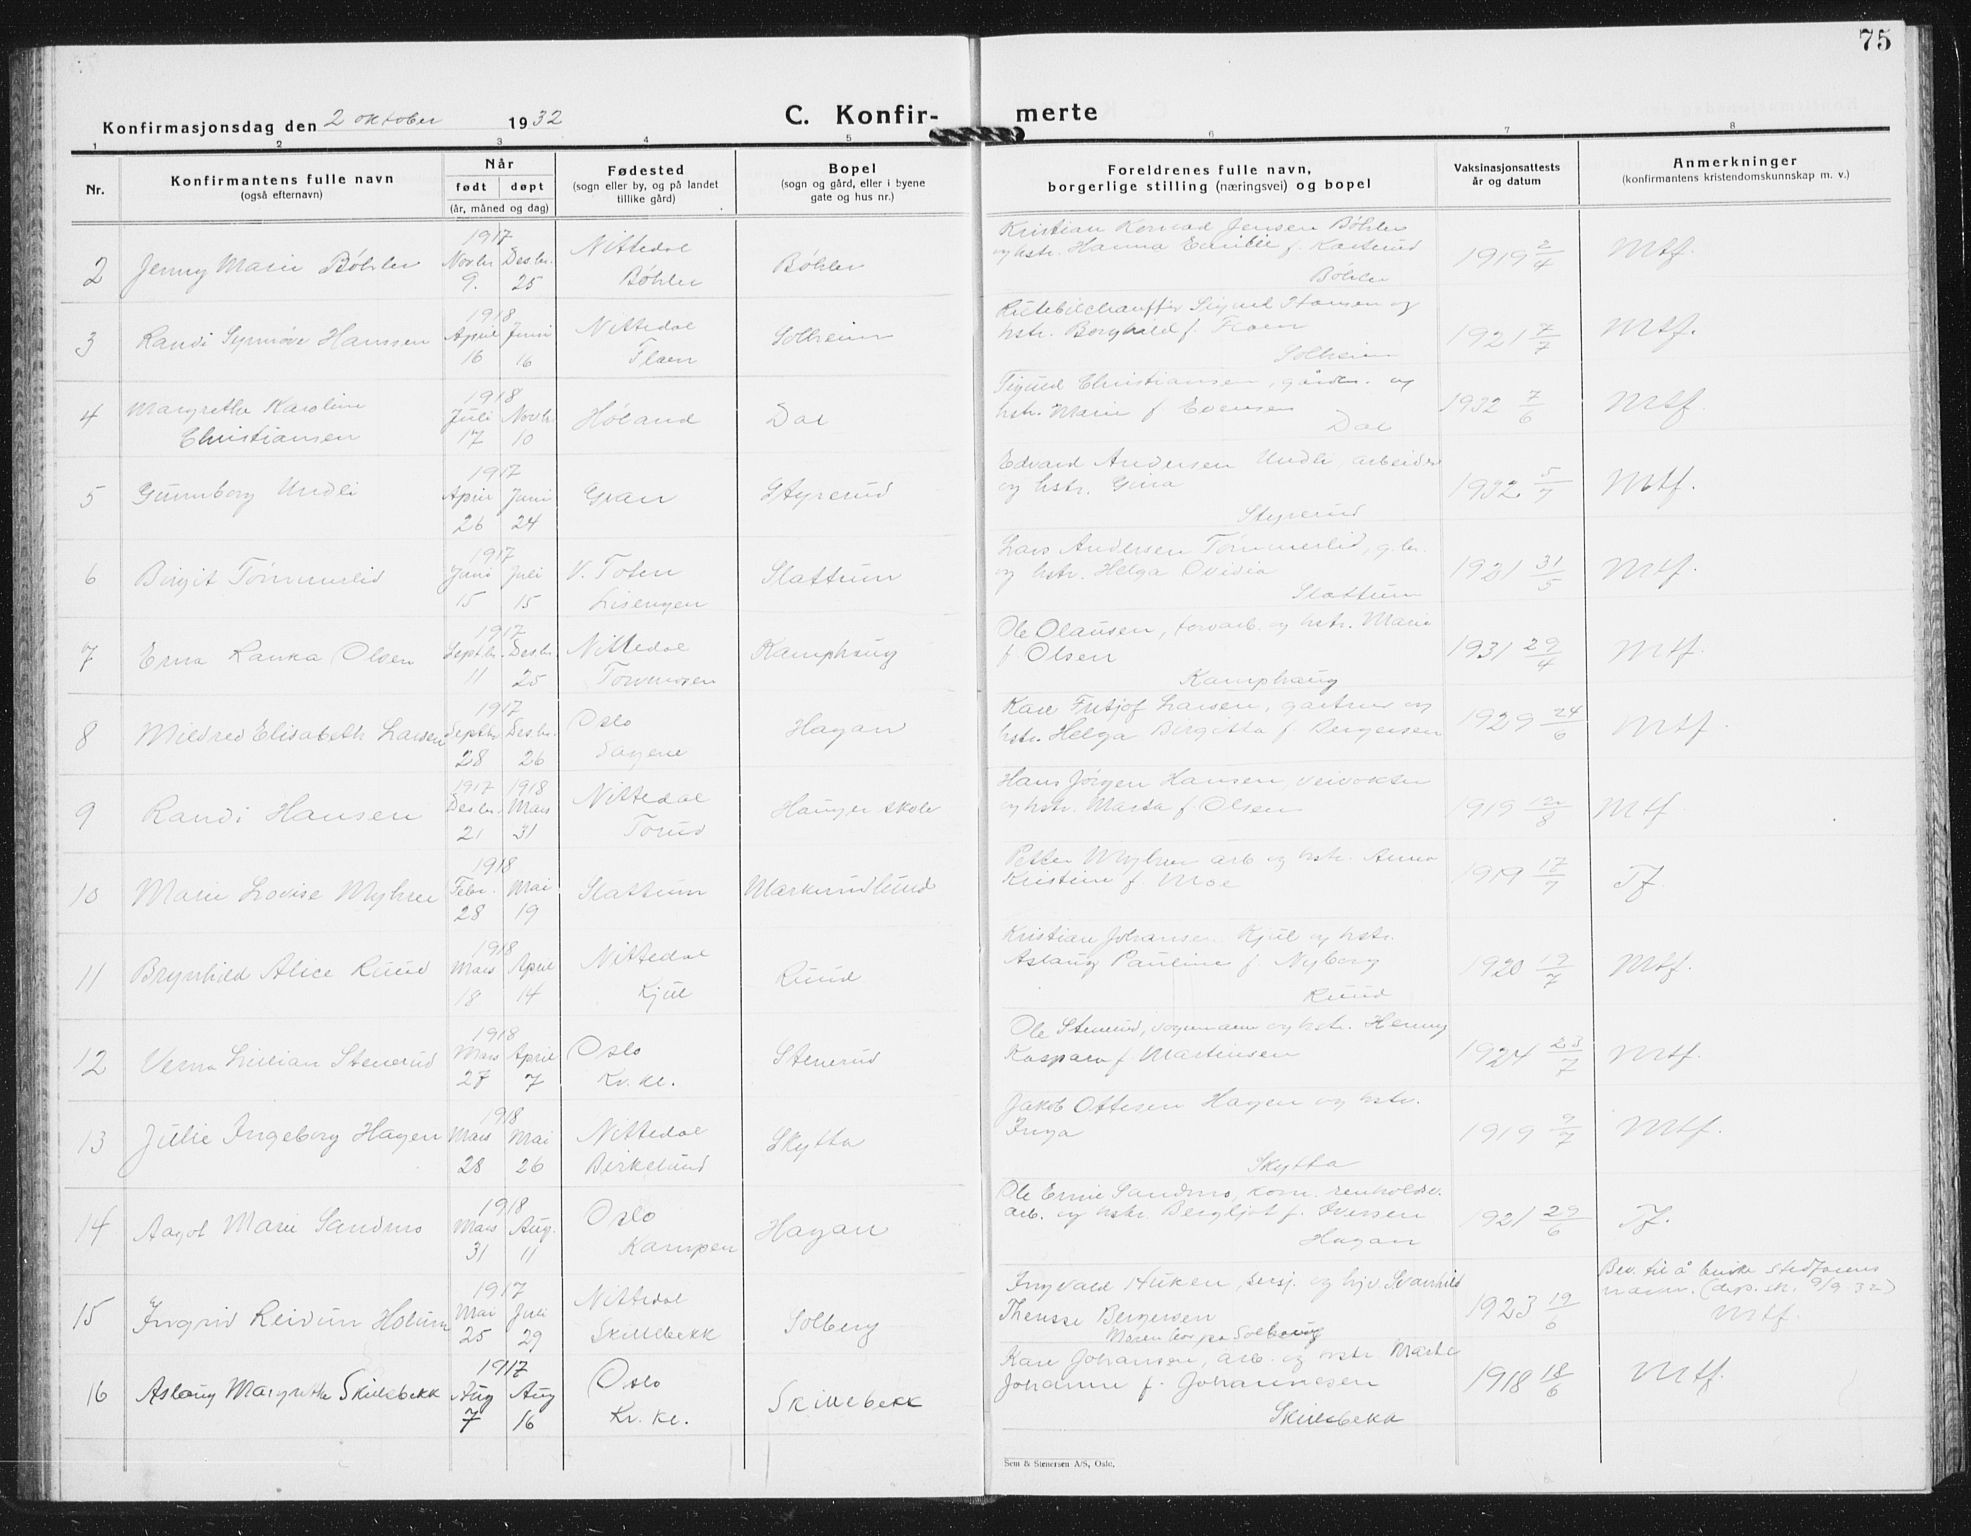 75
Konfirmasjonsdag den 2 oktober 1932
C. Konfir-
merte
1 2 3 4 5 6 7 8
Nr.
Konfirmantens fulle navn
(også efternavn)
Når
født døpt
(år, måned og dag)
Fødested
(sogn eller by, og på landet
tillike gård)
Bopel
(sogn og gård, eller i byene
gate og hus nr.)
Foreldrenes fulle navn,
borgerlige stilling (næringsvei) og bopel
Vaksinasjonsattests
år og datum
Anmerkninger
(konfirmantens kristendomskunnskap m. v.)
2 Jenny Marie Bøhler
1917
Novbr. Desbr.
9. 25
Nittedal
Bøhler
Bøhler
Kristian Konrad Jensen Bøhler
og hstr. Hanna Emilie f. Kasterud
Bøhler
1919 2/4
Mtf.
3 Randi Synnøve Hanssen
1918
April Juni
16 16
Nittedal
Flaen
Solheim
Rutebilchauffør Sigurd Hansen og
hstr. Borghild f. Flaen
Solheim
1921 7/7
Mtf.
4 Margrethe Karoline
Christiansen
1918
Juli Novbr.
17 10
Høland
Dal
Sigurd Christiansen, gårdbr. og
hstr. Marie f. Evensen
Dal
1932 7/6
Mtf.
5 Gunnborg Undli
1917
April Juni
26 24
Gran
Styrerud
Edvard Andersen Undli, arbeider
og hstr. Gina
Styrerud
1932 5/7
Mtf.
6 Birgit Tømmerlid
1917
Juni Juli
15 15
V. Toten
Lisengen
Slattum
Lars Andersen Tømmerlid, g.br.
og hstr. Helga Ovidia
Slattum
1921 31/5
Mtf.
7 Erna Ranka Olsen
1917
Septbr. Desbr.
11 25
Nittedal
Tornmosen
Kamphaug
Ole Olausen, torvarb. og hstr. Marie
f. Olsen
Kamphaug
1931 29/4
Mtf.
8 Mildred Elisabeth Larsen
1917
Septbr. Desbr.
28 26
Oslo
Sagene
Hagan
Karl Fritjof Larsen, gartner og
hstr. Helga Birgitta f. Bergersen
1929 24/6
Mtf
9 Randi Hansen
1917 1918
Desbr. Mars
21 31
Nittedal
Torud
Hauger skole
Hans Jörgen Hansen, veivokter
og hstr. Marta f. Olsen
1919 12/8
Mtf
10 Marie Lovise Myhrer
1918
Febr. Mai
28 19
Slattum
Markuslund
Petter Myhrer arb og hstr. Anna
Kristine f. Moe
1919 17/7
Tf.
11 Brynhild Alice Ruud
1918
Mars April
18 14
Nittedal
Kjul
Ruud
Kristian Johansen Kjul og hstr.
Aslaug Pauline f. Nyborg
Ruud
1920 12/7
Mtf.
12 Verna Lillian Stenerud
1918
Mars April
27 7
Oslo
Kv. kl.
Stenerud
Ole Stenerud, vognmann og hstr. Henny
Kaspara f. Martinsen
1924 23/7
Mtf.
13 Julie Ingeborg Hagen
1918
Mars Mai
28 26
Nittedal
Birkelund
Skytta
Jakob Ottesen Hagen og hstr.
Inga
Skytta
1919 9/7
Mtf.
14 Aagot Marie Sandmo
1918
Mars Aug.
31 11
Oslo
Kampen
Hagan
Ole Ernie Sandmo, kom. renholdsv.
arb. og hstr. Bergljot f. Iversen
Hagan
1921 29/6
Tf.
15 Ingrid Reidun Holum
1917
Mai Juli
25 29
Nittedal
Skillebekk
Solberg
Ingvald Huken, sersj. og hjv. Svanhild
Therese Bergersen
Moren bor på Solhaug
1923 19/6
Bev. til å bruke stedfarens
navn. (dep. sk. 9/9-32)
Mtf.
16 Aslaug Margrethe Skillebekk
1917
Aug Aug
7 16
Oslo
Kv. kl.
Skillebekk
Karl Johansen, arb. og hstr Marte
Johanne f. Johannesen
Skillebekk
1918 18/6
Mtf.
Sem & Stenersen A/S, Oslo.